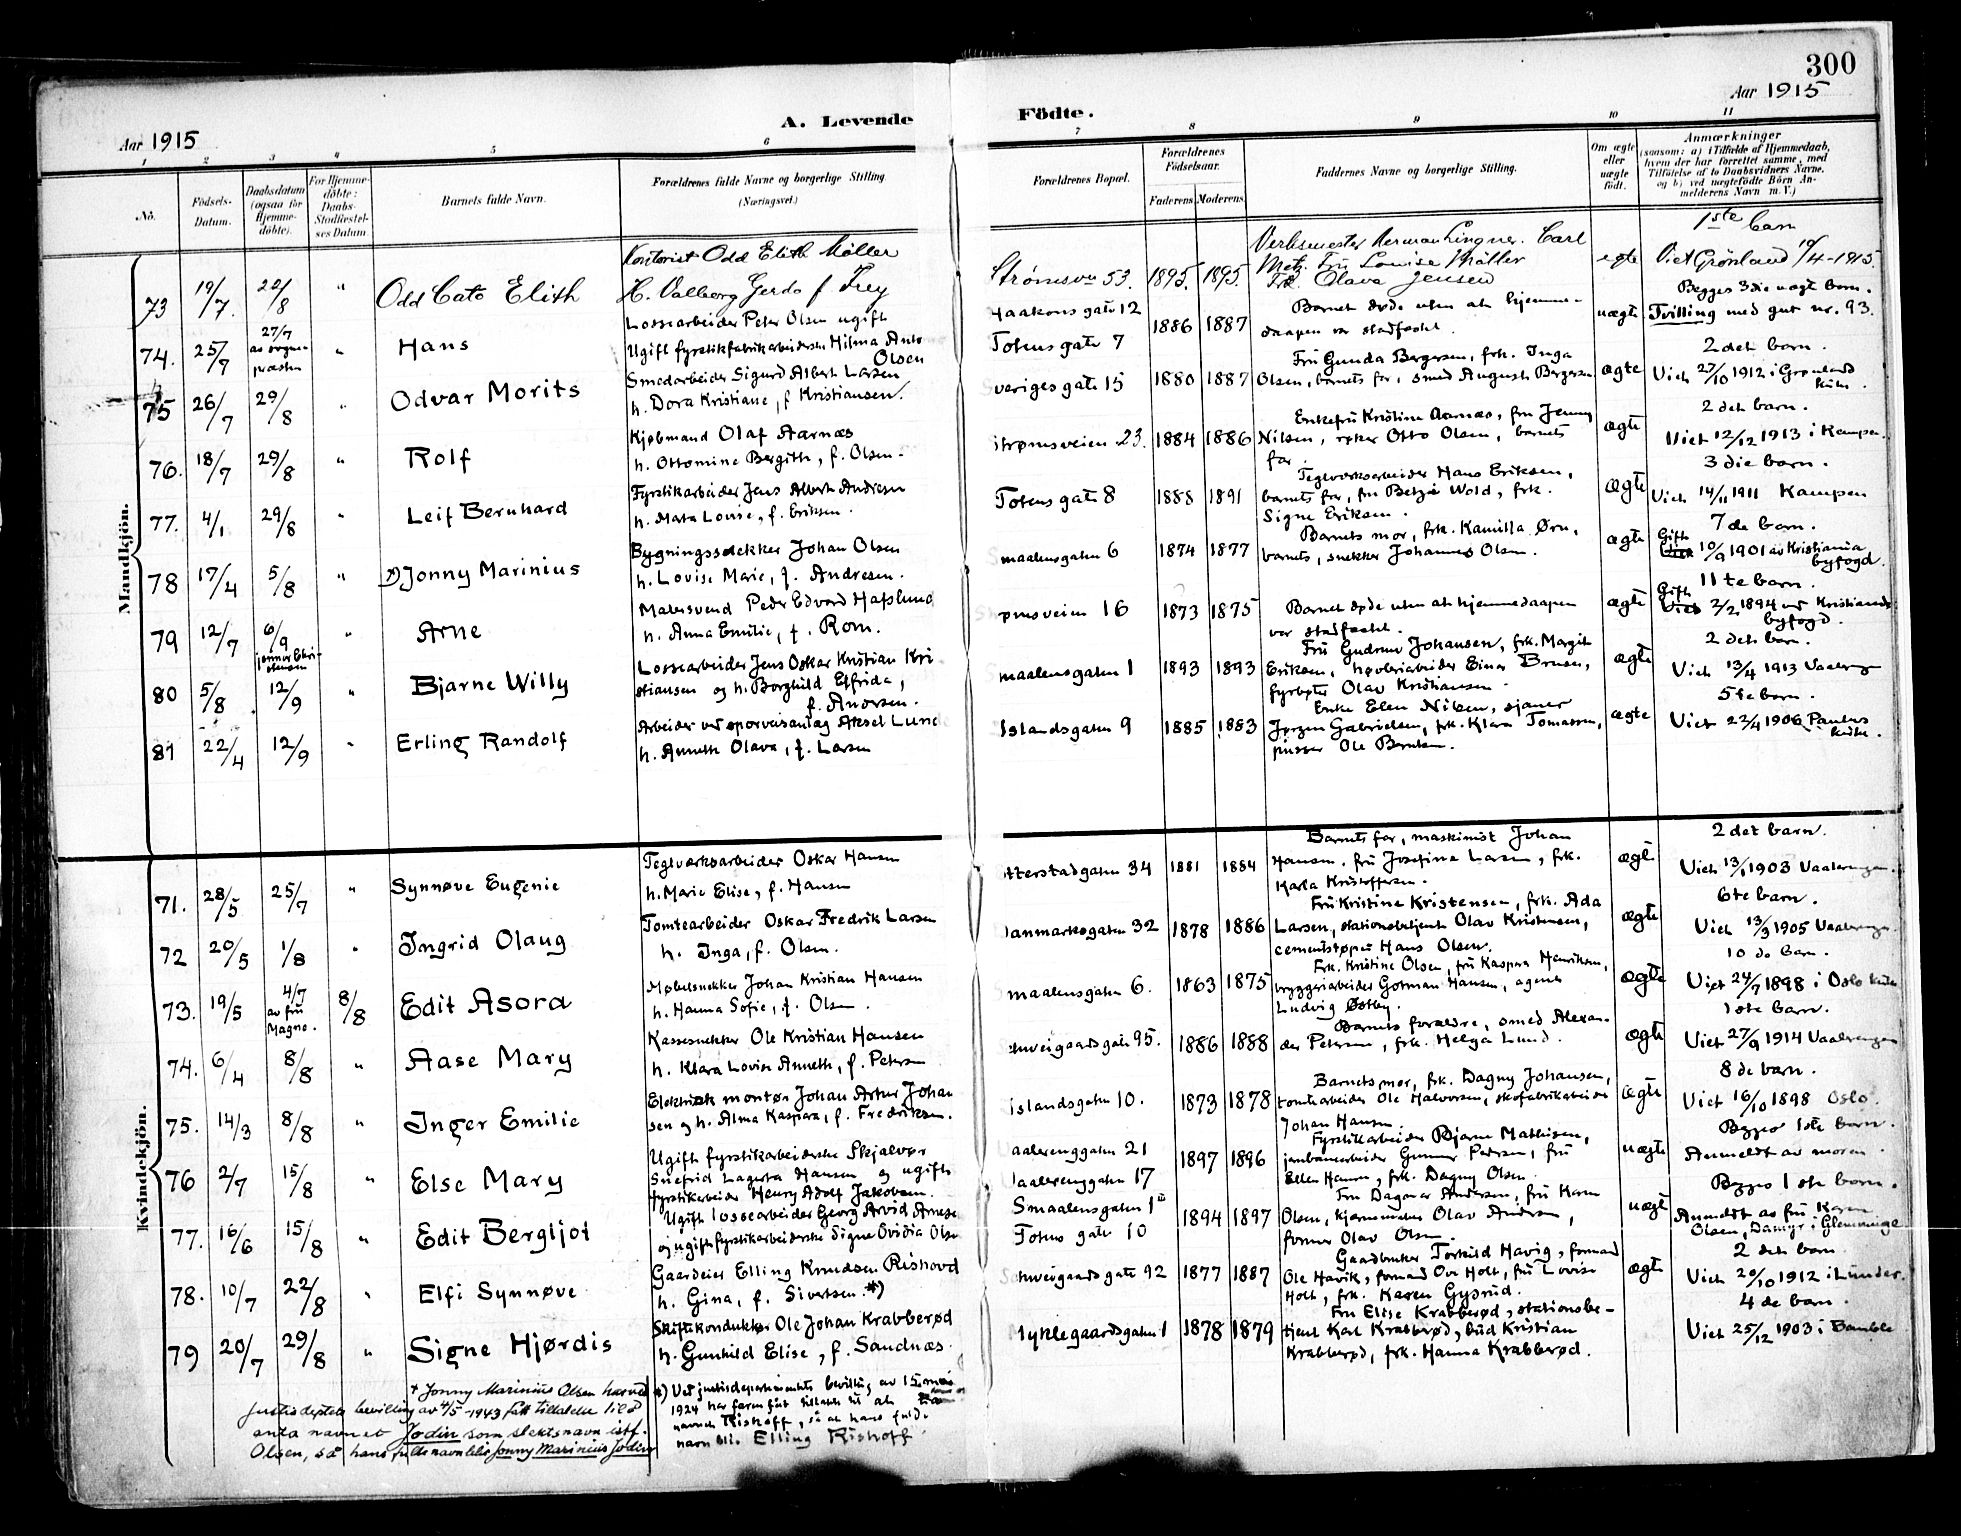 300
Aar 1915
A. Levende
Födte.
Aar 1915
1 2 3 4 5 6 7 8 9 10 11
No.
Födsels-
Datum.
Daabsdatum
(ogsaa for
Hjemme-
döbte).
For Hjemme-
döbte:
Daabs-
Stadfæstel-
ses Datum
Barnets fulde Navn.
Forældrenes fulde Navne og borgerlige Stilling
(Næringsvei.)
Forældrenes Bopæl.
Forældrenes
Födselsaar.
Faderens Moderens.
Faddernes Navne og borgerlige Stilling.
Om ægte
eller
uægte
födt.
Anmærkninger
(saasom: a) i Tilfælde af Hjemmedaab,
hvem der har forrettet samme, med
Tilföielse af to Daabsvidners Navne.
og b) ved uægtefödte Börn An-
melderens Navn m. V.)
Mandkjön.
73 19/7. 22/8 " Odd Cato Elith
Kontorist Odd Elith Møller
H. Valborg Gerda f Frey
Strømsvn 53. 1895. 1895.
Verksmester Herman Lingner. Carl
Metz. Fru Louise Møller
Frk. Olava Jensen
egte
1ste barn
Viet Grønland 10/4-1915.
74. 25/7 27/7 av sogne-
præsten " Hans
Lossearbeider Peter Olsen ugift
Ugift fyrstikfabrikarbeiderske Hilma Anto
Olsen
Haakons gate 12
Totens gate 7
1886 1887
Barnet døde uten at hjemme-
daapen var stadfæstet.
uægte
Begges 3die uægt barn.
Tvilling med gut nr. 93.
75 26/7 29/8 " Odvar Morits
Smedarbeider Sigurd Albert Larsen
h. Dora Kristiane, f Kristiansen.
Sveriges gate 15 1880 1887
Fru Gunda Bergersen, frk. Inga
Olsen, barnets far, smed August Bergersen
ægte
2det barn.
Viet 27/10 1912 i Grønlands
kirke.
76. 18/7 29/8 " Rolf
Kjøbmand Olaf Aarnæs
h. Ottomine Bergithe, f. Olsen.
Strømsveien 23. 1884 1886
Enkefru Kristine Aarnæs, fru Jenny
Nilsen, røker Otto Olsen, barnets
far.
ægte
2det barn.
Viet 12/12 1913 i Kampen.
77. 4/1 29/8 " Leif Bernhard
Fyrstikarbeider Jens Albert Andresen
h. Marta Louise, f. Eriksen.
Totens gate 8 1888 1891
Teglverksarbeider Hans Eriksen,
barnets far, fru Betzie Wold, frk.
Signe Eriksen.
ægte
3die barn.
Viet 14/11 1911 Kampen
78 17/4 5/8 " x) Jonny Marinius
Bygningssnekker Johan Olsen
h. Lovise Marie, f. Andresen.
Smaalensgaten 6 1874 1877
Barnets mor, frk. Kamilla Ørn,
barnets, snekker Johannes Olsen.
ægte
7de barn.
Gift
Viet 10/9 1901 av Kristiania
byfogd.
79 12/7 6/9 " Arne
Malersvend Peder Edvard Hafslund
h. Anna Emilie, f. Rom.
Strømsveien 16 1873 1875
Barnet døde uten at hjemmedaapen
var stadfæstet.
ægte
11te barn.
Gift
Viet 2/2 1894 ved Kristiania
byfogd.
80 5/8 12/9 " Bjarne Willy
Lossearbeider Jens Oskar Kristian Kri
stiansen og h. Borghild Elfrida,
f. Andersen.
Smaalensgaten 1 1893 1893
Fru Gudrun Johansen, frk. Margit
Eriksen, høvleriarbeider Einar Bruun,
fyrbøter Olav Kristiansen.
ægte
2det barn.
Viet 13/4 1913 Vaalereng
81 22/4 12/9 " Erling Randolf
Arbeider ved sporveisanlæg Aksel Lund
h. Annette Olava, f. Larsen
Islandsgaten 9 1885 1883
Enke Elen Nilsen, sjauer
Jørgen Gabrielsen, frk. Klara Tomassen,
pusser Ole Berntsen.
ægte
5te barn.
Viet 22/4 1906 Paulus
kirke.
Kvindekjön.
71. 28/5 25/7 " Synnøve Eugenie
Teglverksarbeider Oskar Hansen
h. Marie Elise, f. Hansen
Etterstadgaten 34 1881 1884
Barnets far, maskinist Johan
Hansen, fru Josefine Larsen, frk.
Karla Kristoffersen.
ægte
2det barn.
Viet 13/1 1903 Vaalerengen.
72 20/5 1/8 " Ingrid Olaug
Tomtearbeider Oskar Fredrik Larsen
h. Inga, f. Olsen.
Danmarksgaten 32 1878 1886
Fru Kristine Kristensen, frk. Ada
Larsen, stationsbetjent Olav Kristensen,
cementstøper Hans Olsen.
ægte
6te barn.
Viet 13/3 1905 Vaalerengen.
73. 19/5 4/7 av fru
Magno. 8/8 Edit Asora
Møbelsnekker Johan Kristian Hansen
h. Hanna Sofie, f. Olsen.
Smaalensgaten 6. 1863 1875
Frk. Kristine Olsen, fru Kaspara Henriksen,
bryggeriarbeider Gotman Hansen, agent
Ludvig Østby.
ægte
10de barn.
Viet 24/7 1898 i Oslo kirke
74. 6/4 8/8 " Aase Mary
Kassesnekker Ole Kristian Hansen
h. Klara Lovise Annette, f. Petersen
Schweigaardsgate 95. 1886 1888
Barnets forældre, smed Alexan-
der Petersen, frk. Helga Lund.
ægte
1ste barn.
Viet 27/9 1914 Vaalerengen
75. 14/3 8/8 " Inger Emilie
Elektrisk montør Johan Artur Johan
sen og h. Alma Kaspara, f. Fredriksen.
Islandsgaten 10. 1873 1878
Barnets mor, frk. Dagny Johansen,
tomtearbeider Ole Halvorsen, skofabrikarbeider
Johan Hansen.
ægte
8de barn.
Viet 16/10 1898 Oslo.
76 2/7 15/8 " Else Mary
Ugift fyrstikarbeiderske Skjalvør
Snefrid Lagerta Hansen og ugift
fyrstikarbeider Henry Adolf Jakobsen.
Vaalerenggaten 21
Vaalerenggaten 17
1897 1896
Fyrstikarbeider Bjarne Mathisen,
jernbanearbeider Gunnar Pedersen, fru
Ellen Hansen, frk. Dagny Olsen
uægte
Begges 1ste barn.
Anmeldt av moren.
77. 16/6 15/8 " Edit Bergljot
Ugift lossearbeider Georg Arvid Arnese
og ugift fyrstikarbeiderske Signe Ovidia Olse
Smaalensgaten 1
Totens gate 10
1894 1897
Fru Dagmar Andersen, fru Karen
Olsen, kjernemaker Olav Andersen,
former Olav Olsen.
uægt
Begges 1ste barn.
Anmeldt av fru Karen
Olsen, Damyr i Glemminge
78. 10/7 22/8 " Elfi Synnøve
Gaardeier Elling Knudsen Rishovd
h. Gina, f. Sivertsen. *)
Schweigaardsgate 92 1877 1887
Gaardbruker Torkild Havig, formand
Ole Havik, formand Ove Holt, fru Lovise
Holt, frk. Karen Gysrud.
ægte
2det barn
Viet 20/10 1912 i Lunder.
79 20/7 29/8 " Signe Hjørdis
Skiftekonduktør Ole Johan Krabberød
h. Gunhild Elise, f. Sandnæs.
Myklegaardsgaten 1 1878 1879
Fru Elise Krabberød, stationsbe-
tjent Karl Krabberød, bud Kristian
Krabberød, frk. Hanna Krabberød.
4de barn.
Viet 25/12 1903 i Bamble
x Jonny Marinius Olsen har ved
Justisdeptets bevilling av 4/5-1943 fått tillatelse til å
anta navnet Jodin som slektsnavn istf.
Olsen, så hans fulle navn blir Jonny Marinius Jodin
*) Ved justisdepartementets bevilling av 15 mai
1924 har faren fåt tilladelse til at
navnet Rishoff, så at hans fulde
navn blir Elling Rishoff